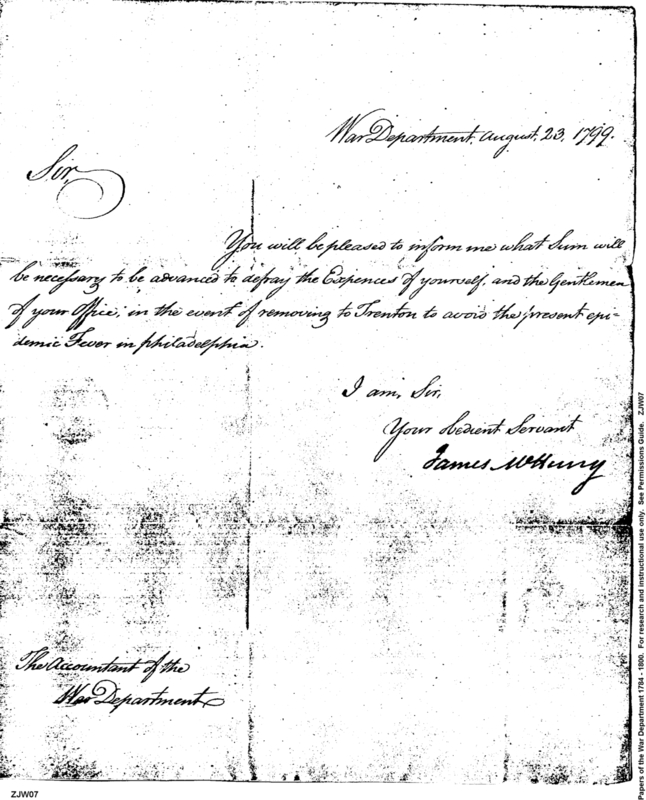 War Department, August, 23, 1799.
Sir,
You will be pleased to inform me what Sum will
be necessary to be advanced to defray the Expences of yourself, and the Gentlemen
of your Office, in the event of removing to Trenton to avoid the present epi-
demic Fever in philadelphia.
I am, Sir,
Your obedient Servant
James McHenry
The Accountant of the
War Department
Papers of the War Department 1784 - 1800. For research and instructional use only. See Permissions Guide. ZJW07
ZJW07